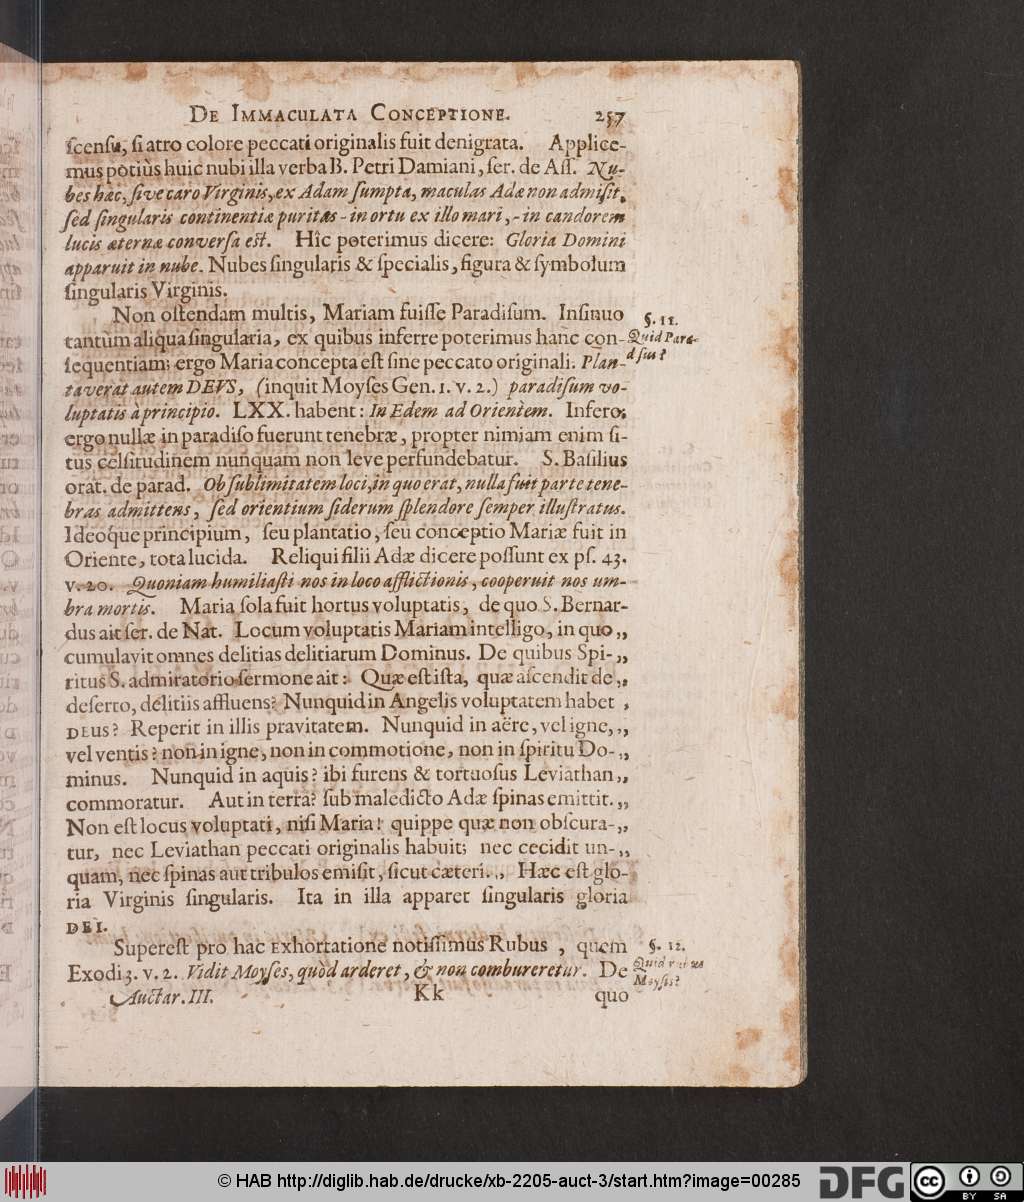 DE IMMACULATA CONCEPTIONE. 257
ſcenſu, ſi atro colore peccati originalis fuit denigrata. Applice-
mus potiùs huic nubi illa verba B. Petri Damiani, ſer. de Aſſ. Nu-
bes hæc, ſive caro Virginis, ex Adam ſumpta, maculas Adæ non admiſit,
ſed ſingularis continentiæ puritas - in ortu ex illo mari, - in candorem
lucis æternæ converſa eſt. Hîc poterimus dicere: Gloria Domini
apparuit in nube. Nubes ſingularis & ſpecialis, figura & ſymbolum
ſingularis Virginis.
Non oſtendam multis, Mariam fuiſſe Paradiſum. Inſinuo
§. 11.
tantùm aliqua ſingularia, ex quibus inferre poterimus hanc con-
Quid Para-
ſequentiam; ergo Maria concepta eſt ſine peccato originali. Plan-
dſus?
taverat autem DEVS, (inquit Moyſes Gen. 1. v. 2.) paradiſum vo-
luptatis à principio. LXX. habent: In Edem ad Orientem. Infero;
ergo nullæ in paradiſo fuerunt tenebræ, propter nimiam enim ſi-
tus celſitudinem nunquam non leve perfundebatur. S. Baſilius
orat. de parad. Ob ſublimitatem loci, in quo erat, nulla fuit parte tene-
bras admittens, ſed orientium ſiderum ſplendore ſemper illuſtratus.
Ideoque principium, ſeu plantatio, ſeu conceptio Mariæ fuit in
Oriente, tota lucida. Reliqui filii Adæ dicere poſſunt ex pſ. 43.
v. 20. Quoniam humiliaſti nos in loco afflictionis, cooperuit nos um-
bra mortis. Maria ſola fuit hortus voluptatis, de quo S. Bernar-
dus ait ſer. de Nat. Locum voluptatis Mariam intelligo, in quo „
cumulavit omnes delitias delitiarum Dominus. De quibus Spi- „
ritus S. admiratorio ſermone ait: Quæ eſt iſta, quæ aſcendit de „
deſerto, delitiis affluens? Nunquid in Angelis voluptatem habet ,
DEus? Reperit in illis pravitatem. Nunquid in aëre, vel igne, „
vel ventis? non in igne, non in commotione, non in ſpiritu Do- „
minus. Nunquid in aquis? ibi furens & tortuoſus Leviathan „
commoratur. Aut in terra? ſub maledicto Adæ ſpinas emittit. „
Non eſt locus voluptati, niſi Maria! quippe quæ non obſcura- „
tur, nec Leviathan peccati originalis habuit; nec cecidit un- „
quam, nec ſpinas aut tribulos emiſit, ſicut cæteri. „ Hæc eſt glo-
ria Virginis ſingularis. Ita in illa apparet ſingularis gloria
DEI.
Supereſt pro hac Exhortatione notiſſimus Rubus, quem
§. 12.
Exodi 3. v. 2. Vidit Moyſes, quòd arderet, & non combureretur. De
Quid rubus
Moyſis?
Auctar. III. Kk quo
© HAB http://diglib.hab.de/drucke/xb-2205-auct-3/start.htm?image=00285
DFG
cc
BY SA